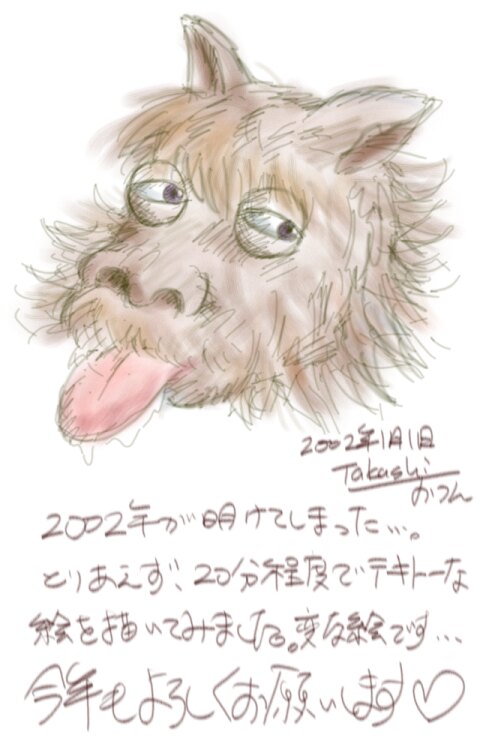 2002年1月1日
Takashi
おつん
2002年が明けてしまった…。
とりあえず、20分程度でテキトーな
絵を描いてみました。変な絵です…
今年もよろしくお願いします♡